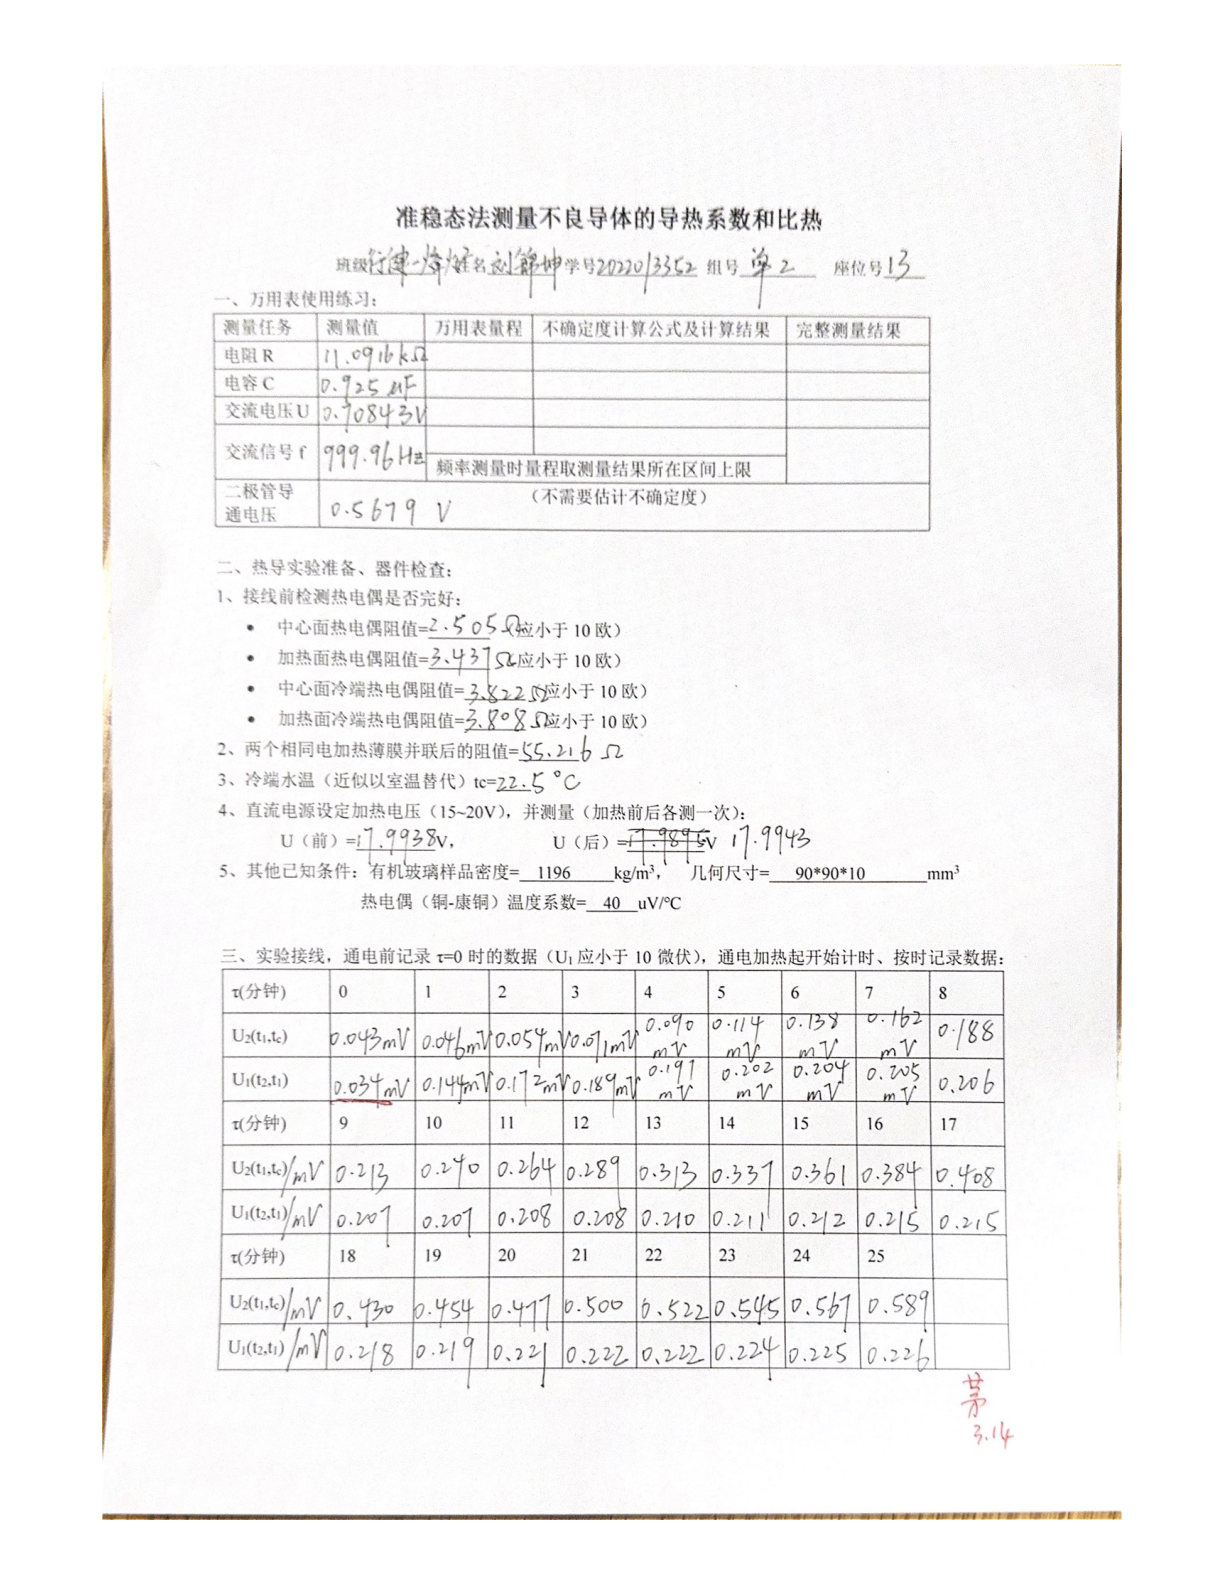 准稳态法测量不良导体的导热系数和比热
班级行健-烽火 姓名刘锦坤 学号2022013352 组号 单2 座位号13
一、万用表使用练习：
测量任务 测量值 万用表量程 不确定度计算公式及计算结果 完整测量结果
电阻 R 11.0916kΩ
电容 C 0.925 μF
交流电压 U 0.70843V
交流信号 f 999.96Hz
频率测量时量程取测量结果所在区间上限
二极管导通电压 0.5679 V （不需要估计不确定度）
二、热导实验准备、器件检查：
1、接线前检测热电偶是否完好：
• 中心面热电偶阻值=2.505Ω（应小于 10 欧）
• 加热面热电偶阻值=3.437Ω（应小于 10 欧）
• 中心面冷端热电偶阻值=3.822Ω（应小于 10 欧）
• 加热面冷端热电偶阻值=3.808Ω（应小于 10 欧）
2、两个相同电加热薄膜并联后的阻值=55.216 Ω
3、冷端水温（近似以室温替代）tc=22.5°C
4、直流电源设定加热电压（15~20V），并测量（加热前后各测一次）：
U（前）=17.9938V， U（后）=17.9895V 17.9943
5、其他已知条件：有机玻璃样品密度= 1196 kg/m³， 几何尺寸= 90*90*10 mm³
热电偶（铜-康铜）温度系数= 40 uV/°C
三、实验接线，通电前记录 τ=0 时的数据（U₁ 应小于 10 微伏），通电加热起开始计时、按时记录数据：
τ(分钟) 0 1 2 3 4 5 6 7 8
U₂(t₁,tc) 0.043mV 0.046mV 0.054mV 0.071mV 0.090mV 0.114mV 0.138mV 0.162mV 0.188
U₁(t₂,t₁) 0.034mV 0.144mV 0.172mV 0.189mV 0.197mV 0.202mV 0.204mV 0.205mV 0.206
τ(分钟) 9 10 11 12 13 14 15 16 17
U₂(t₁,tc)/mV 0.213 0.240 0.264 0.289 0.313 0.337 0.361 0.384 0.408
U₁(t₂,t₁)/mV 0.207 0.207 0.208 0.208 0.210 0.211 0.212 0.215 0.215
τ(分钟) 18 19 20 21 22 23 24 25
U₂(t₁,tc)/mV 0.430 0.454 0.477 0.500 0.522 0.545 0.567 0.589
U₁(t₂,t₁)/mV 0.218 0.219 0.221 0.222 0.222 0.224 0.225 0.226
3.14